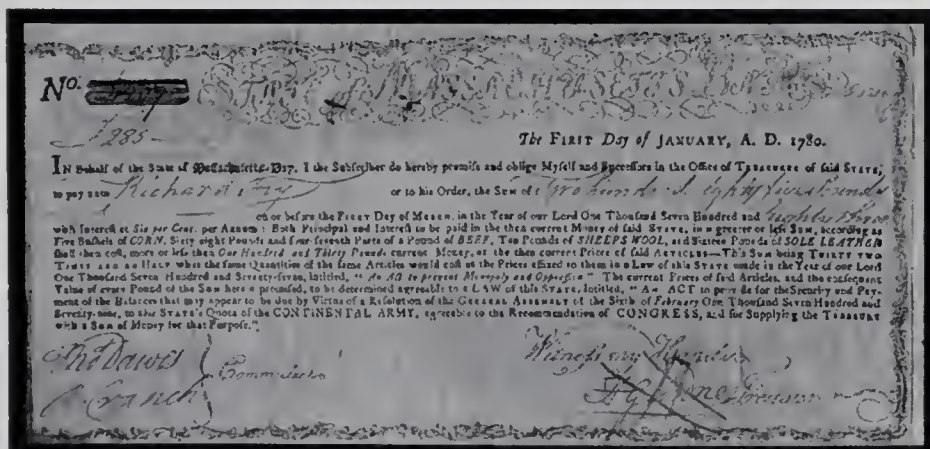 No.
£285
The FIRST Day of JANUARY, A. D. 1780.
IN Behalf of the State of Massachusetts-Bay, I the Subscriber do hereby promise and oblige Myself and Successors in the Office of TREASURER of said STATE,
to pay unto Richard or to his Order, the SUM of Two hund.d & eighty five Pounds
on or before the FIRST Day of MARCH, in the Year of our Lord One Thousand Seven Hundred and Eighty three
with Interest at Six per Cent. per Annum: Both Principal and Interest to be paid in the then current Money of said STATE, in a greater or less SUM, according as
Five Bushels of CORN, Sixty-eight Pounds and four-seventh Parts of a Pound of BEEF, Ten Pounds of SHEEPS WOOL, and Sixteen Pounds of SOLE LEATHER
shall then cost, more or less than One Hundred and Thirty Pounds current Money, at the then current Prices of said ARTICLES—This SUM being THIRTY TWO
TIMES AND AN HALF what the same Quantities of the same Articles would cost at the Prices affixed to them in a LAW of this STATE made in the Year of our Lord
One Thousand Seven Hundred and Seventy-seven, intitled, "An Act to prevent Monopoly and Oppression." The current Prices of said Articles, and the consequent
Value of every Pound of the SUM herein promised, to be determined agreeable to a LAW of this STATE, intitled, "An ACT to provide for the Security and Pay-
ment of the Balances that may appear to be due by Virtue of a Resolution of the GENERAL ASSEMBLY of the Sixth of February One Thousand Seven Hundred and
Seventy-nine, to this STATE's Quota of the CONTINENTAL ARMY, agreeable to the Recommendation of CONGRESS, and for Supplying the TREASURY
with a SUM of Money for that Purpose."
Tho Dawes
Committee
R Cranch
Witness my Hand